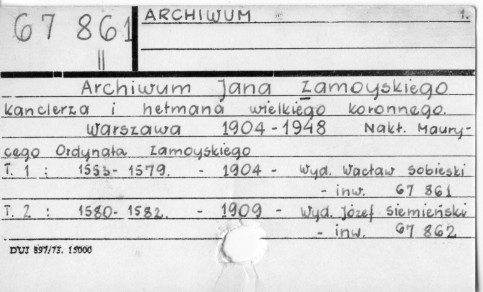 67 861
ARCHIWUM 1.
||
Archiwum Jana Zamoyskiego
kanclerza i hetmana wielkiego koronnego.
Warszawa 1904-1948 Nakł. Maury-
cego Ordynata Zamoyskiego
T. 1 : 1553-1579. - 1904 - Wyd. Wacław Sobieski
- inw. 67 861
T. 2 : 1580-1582. - 1909 - Wyd. Józef Siemieński
- inw. 67 862
DUJ 897/73. 15000